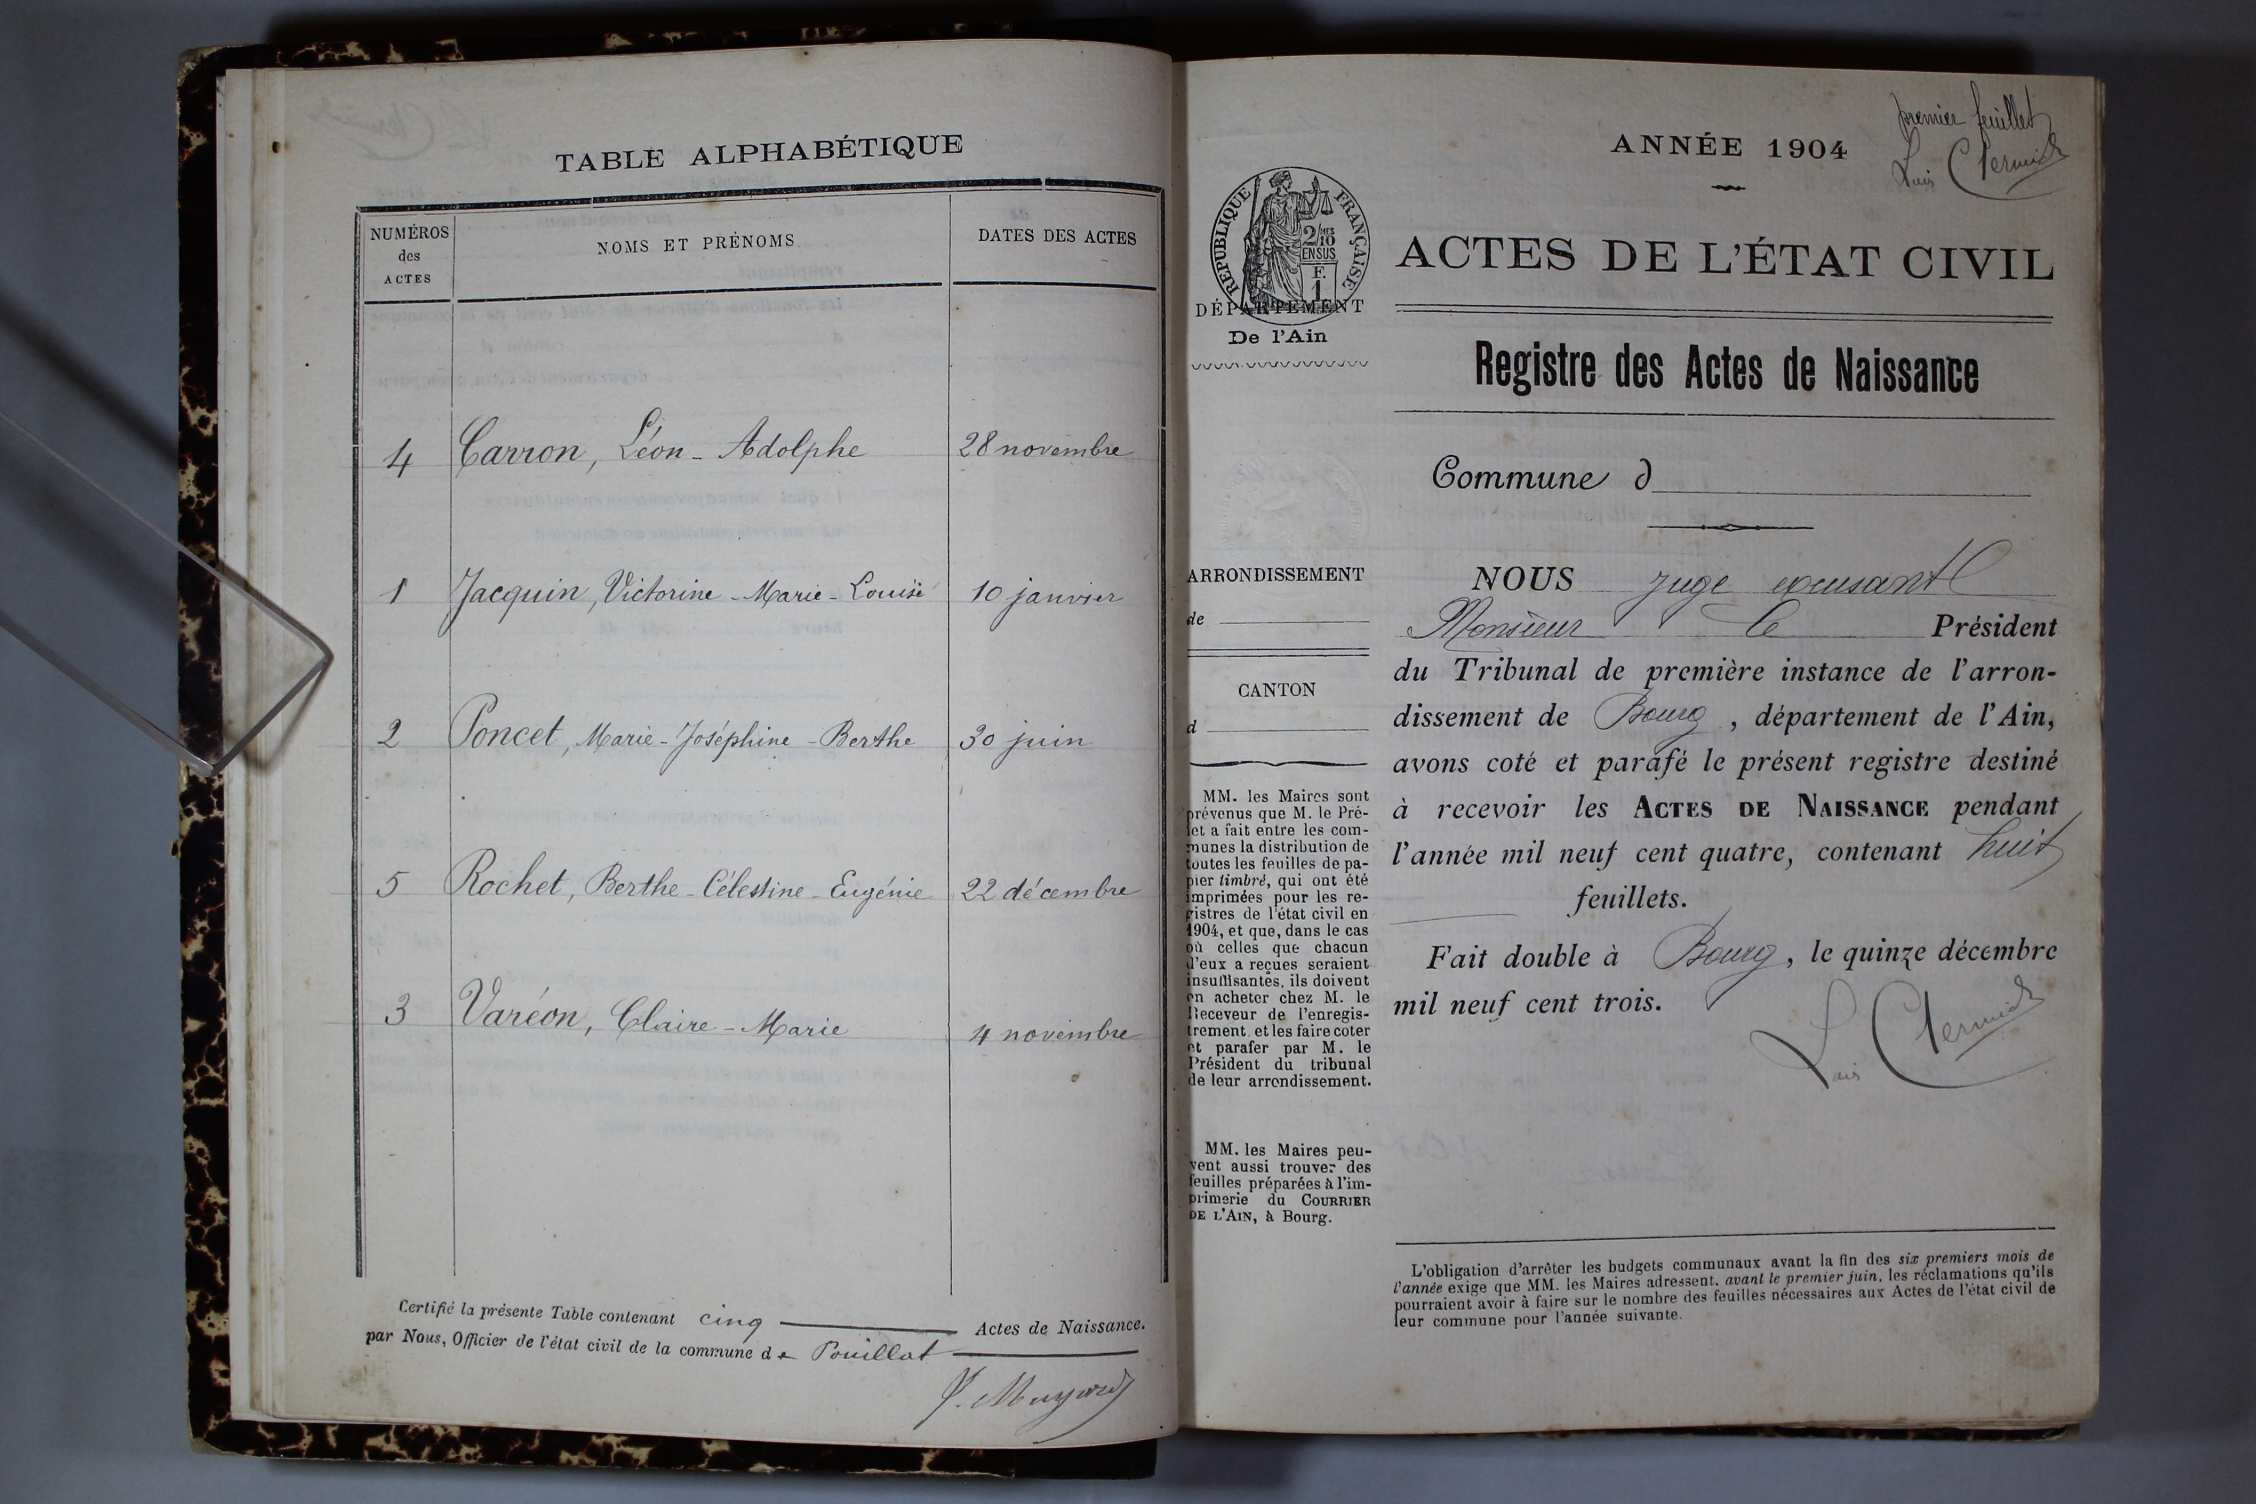 TABLE ALPHABÉTIQUE
NUMÉROS des ACTES
NOMS ET PRÉNOMS
DATES DES ACTES
4 Carron, Léon - Adolphe 28 novembre
1 Jacquin, Victorine - Marie - Louise 10 janvier
2 Poncet, Marie - Joséphine - Berthe 30 juin
5 Rochet, Berthe - Célestine - Eugénie 22 décembre
3 Varéon, Claire - Marie 4 novembre
Certifié la présente Table contenant cinq Actes de Naissance.
par Nous, Officier de l'état civil de la commune de Pouillat
premier feuillet
ANNÉE 1904
RÉPUBLIQUE FRANÇAISE
2/10 MES
EN SUS
F.
1
DÉPARTEMENT
De l'Ain
ACTES DE L'ÉTAT CIVIL
Registre des Actes de Naissance
Commune d
ARRONDISSEMENT
de
CANTON
d
MM. les Maires sont
prévenus que M. le Pré-
fet a fait entre les com-
munes la distribution de
toutes les feuilles de pa-
pier timbré, qui ont été
imprimées pour les re-
gistres de l'état civil en
1904, et que, dans le cas
où celles que chacun
d'eux a reçues seraient
insuffisantes, ils doivent
en acheter chez M. le
Receveur de l'enregis-
trement et les faire coter
et parafer par M. le
Président du tribunal
de leur arrondissement.
MM. les Maires peu-
vent aussi trouver des
feuilles préparées à l'im-
primerie du COURRIER
DE L'AIN, à Bourg.
NOUS juge
Monsieur le Président
du Tribunal de première instance de l'arron-
dissement de Bourg, département de l'Ain,
avons coté et parafé le présent registre destiné
à recevoir les ACTES DE NAISSANCE pendant
l'année mil neuf cent quatre, contenant huit
feuillets.
Fait double à Bourg, le quinze décembre
mil neuf cent trois.
L'obligation d'arrêter les budgets communaux avant la fin des six premiers mois de
l'année exige que MM. les Maires adressent, avant le premier juin, les réclamations qu'ils
pourraient avoir à faire sur le nombre des feuilles nécessaires aux Actes de l'état civil de
leur commune pour l'année suivante.